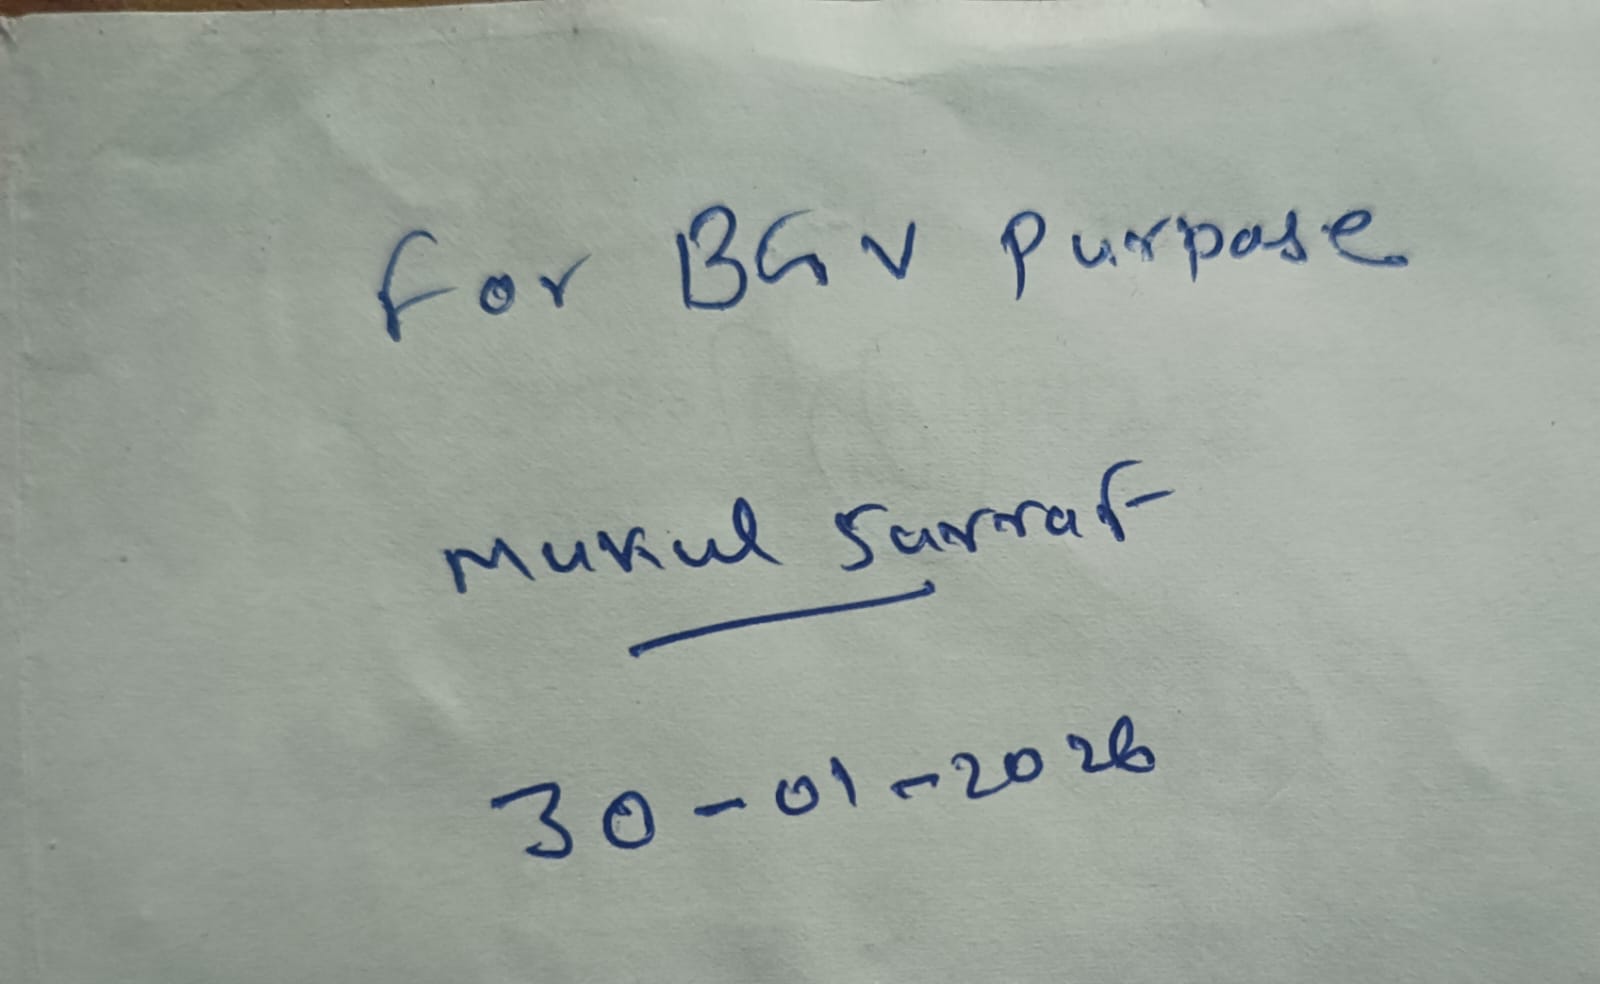 For BGV Purpose
Mukul Sarraf
30-01-2026